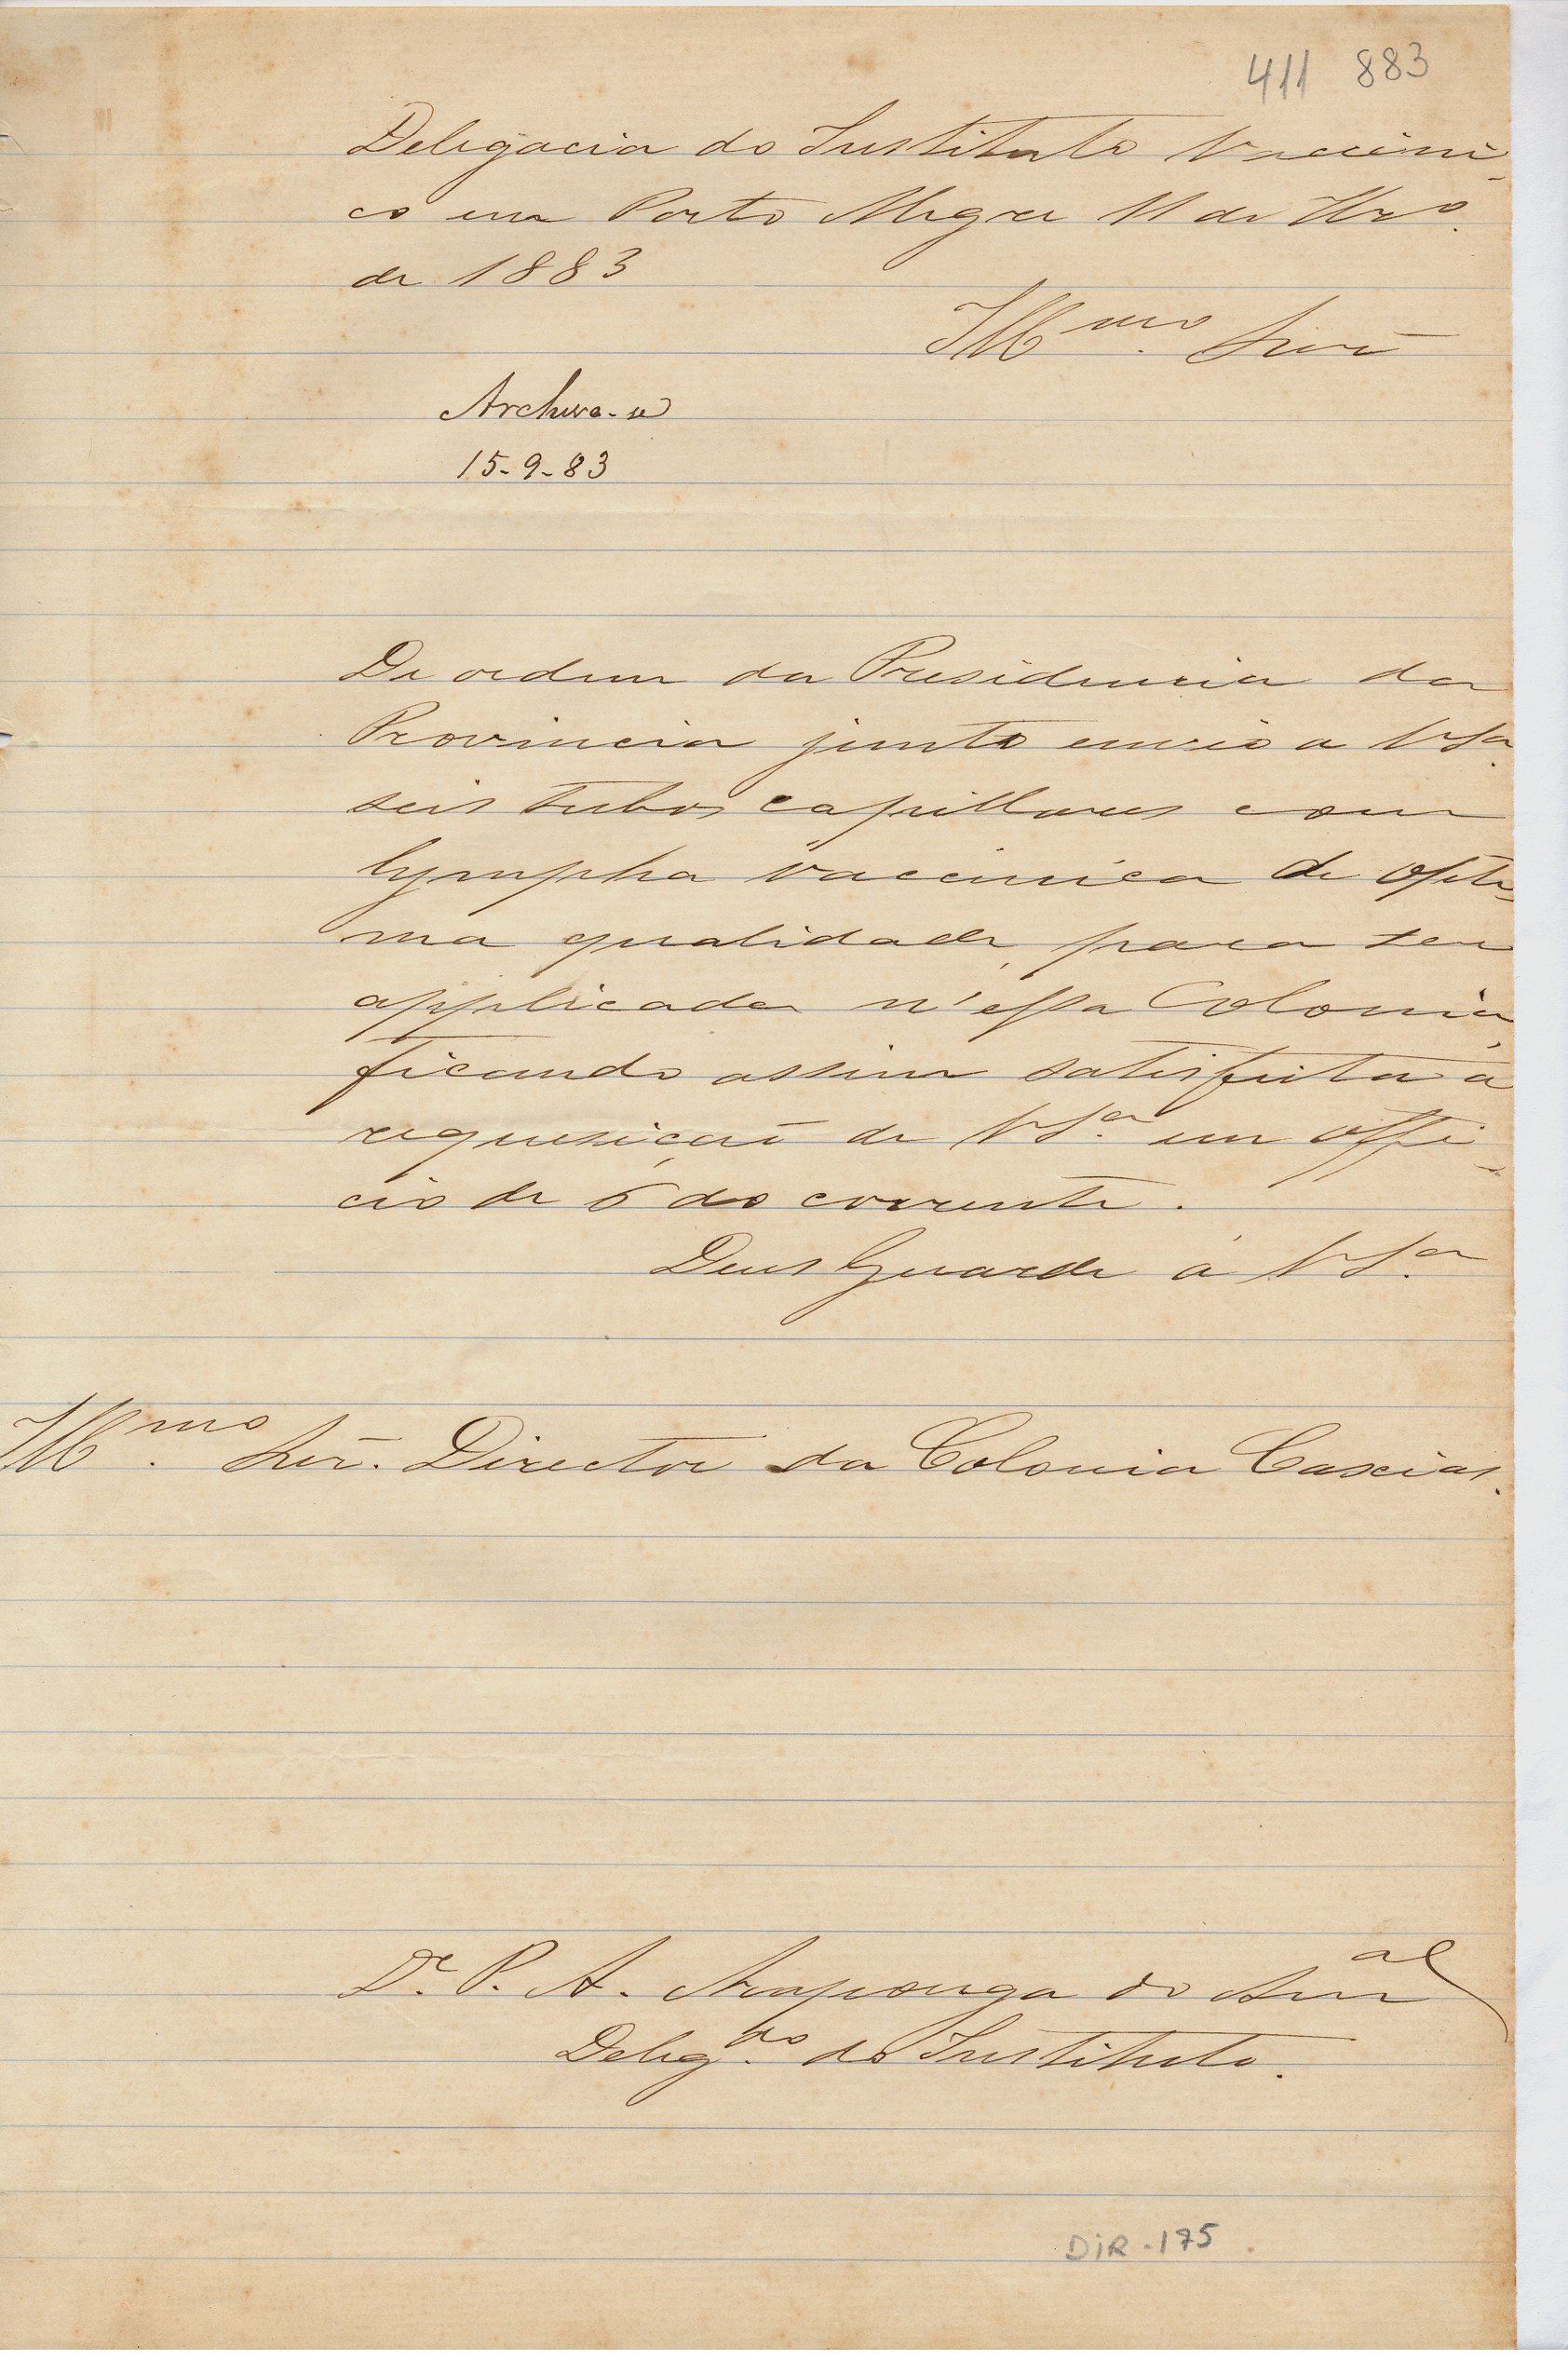 411 883
Delegacia do Instituto Vaccini-
co em Porto Alegre 11 de 7bro.
de 1883
Illmo. Snr.
Archive-se
15-9-83
De ordem da Presidencia da
Provincia junto envio a VSa.
seis tubos capillares com
lympha vaccinica de opti-
ma qualidade, para ser
applicada n'essa Colonia,
ficando assim satisfeita a
requesição de VSa. em offi-
cio de 6 do corrente.
Deus Guarde á VSa.
Illmo. Snr. Director da Colonia Caxias.
Dr. P. A. Araponga do Amal
Delegdo. do Instituto.
DIR-175